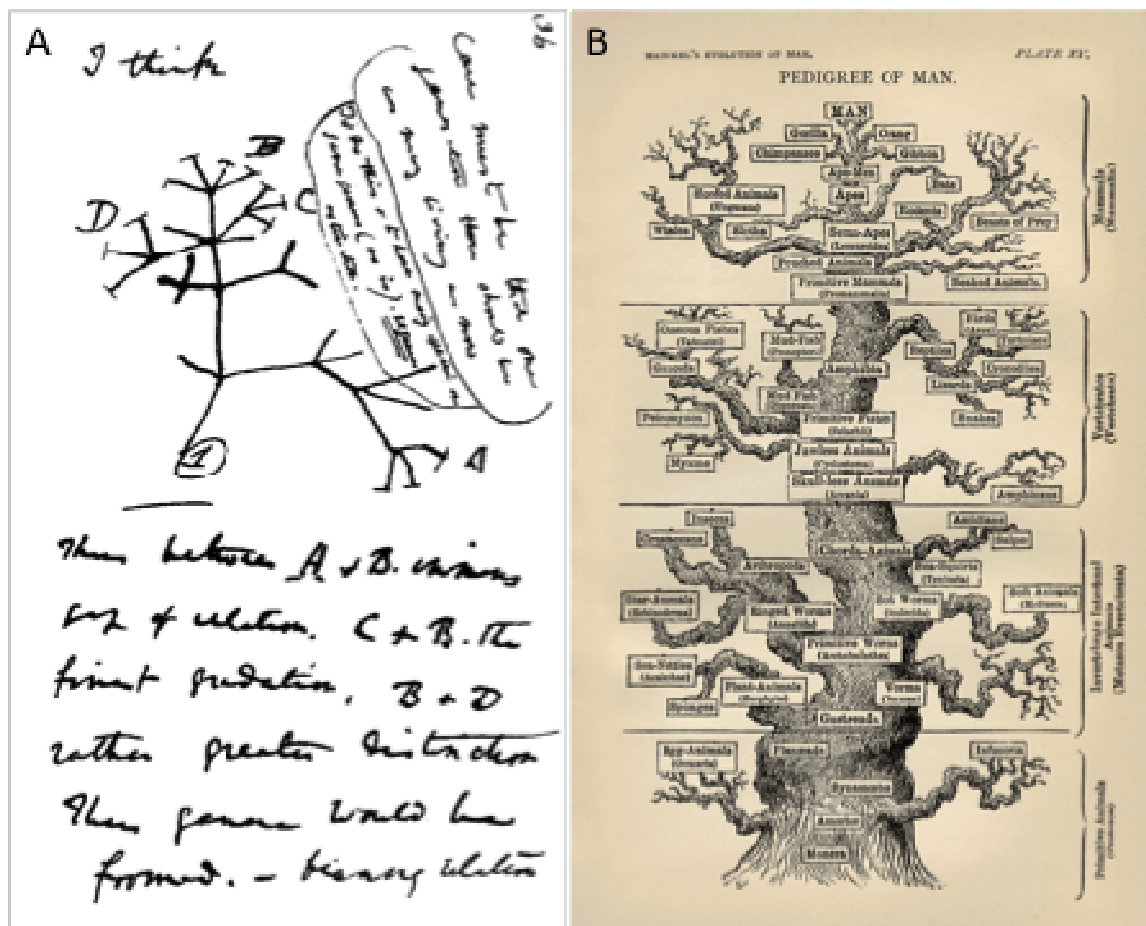 A
I think
36
Case must be that one
generation then should be
as many living as now
To do this & to have many species in
same genus (as is) requires
extinction.
B
D
C
1
A
Thus between A & B. immense
gap of relation. C & B. the
finest gradation, B & D
rather greater distinction
Thus genera would be
formed. — bearing relation
B
HAECKEL'S EVOLUTION OF MAN.
PLATE XV.
PEDIGREE OF MAN.
MAN
Gorilla
Orang
Chimpanzee
Gibbon
Ape-Men
Apes
Bats
Hoofed Animals
(Ungulata)
Rodents
Beasts of Prey
Whales
Sloths
Semi-Apes
(Lemuroidea)
Pouched Animals
Primitive Mammals
(Promammalia)
Beaked Animals.
Mammals
(Mammalia)
Osseous Fishes
(Teleostei)
Mud-Fish
Birds
(Aves)
Tortoises
Ganoids
Amphibia
Reptiles
Crocodiles
Lizards
Mud Fish
Snakes
Petromyzon
Primitive Fishes
(Selachii)
Myxine
Jawless Animals
(Cyclostoma)
Skull-less Animals
(Acrania)
Amphioxus
Vertebrates
(Vertebrata)
Insects
Crustaceans
Ascidians
Salpae
Chorda-Animals
Arthropoda
Sea-Squirts
(Tunicata)
Star-Animals
(Echinoderma)
Ringed Worms
(Annelida)
Soft Worms
(Scolecida)
Soft Animals
(Mollusca)
Primitive Worms
(Archelminthes)
Sea-Nettles
(Acalephae)
Plant-Animals
(Zoophyta)
Worms
Sponges
Gastraeada
Invertebrate Intestinal
Animals
(Metazoa Evertebrata)
Egg-Animals
(Ovularia)
Planaeada
Infusoria
Synamoebae
Amoebae
Monera
Primitive Animals
(Protozoa)